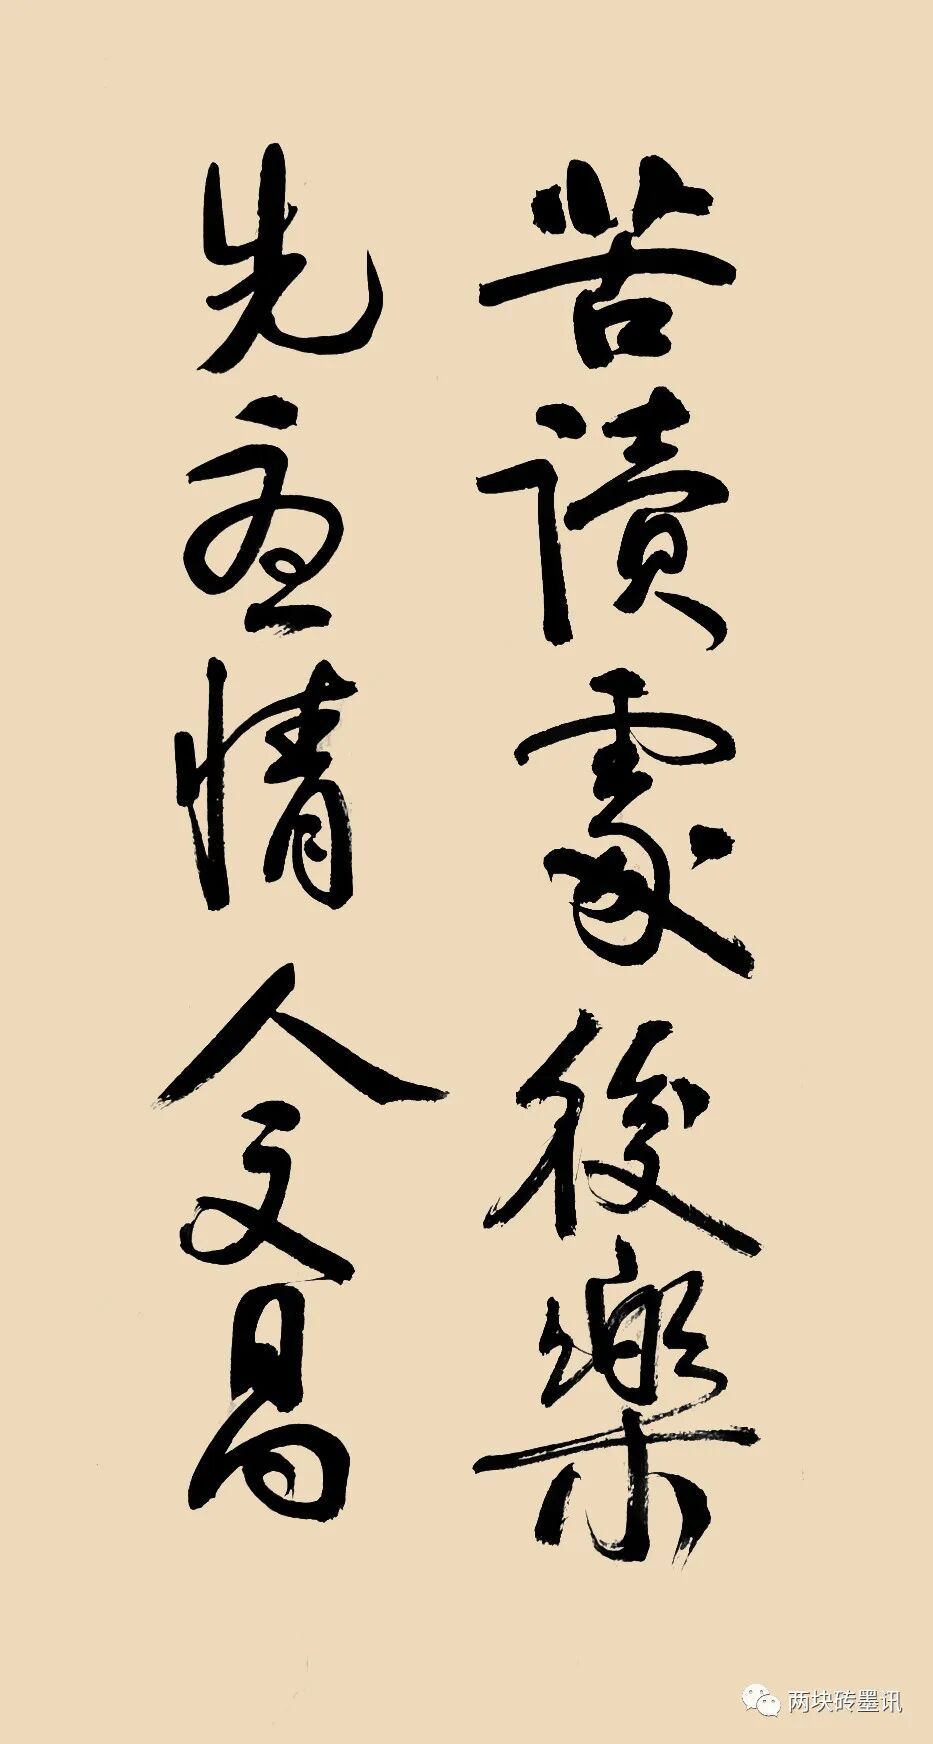 苦讀處後樂
先憂情人文昌
两块砖墨讯